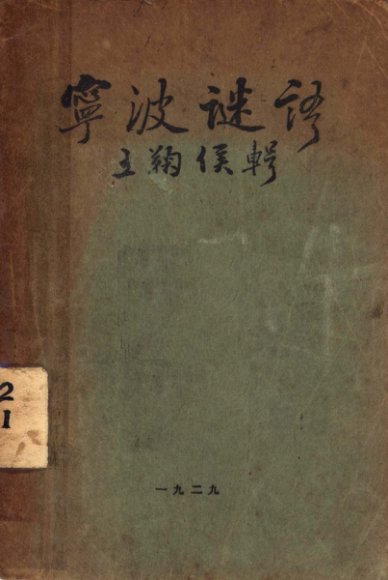 寧波謎語
王鞠侯輯
2
1
一九二九